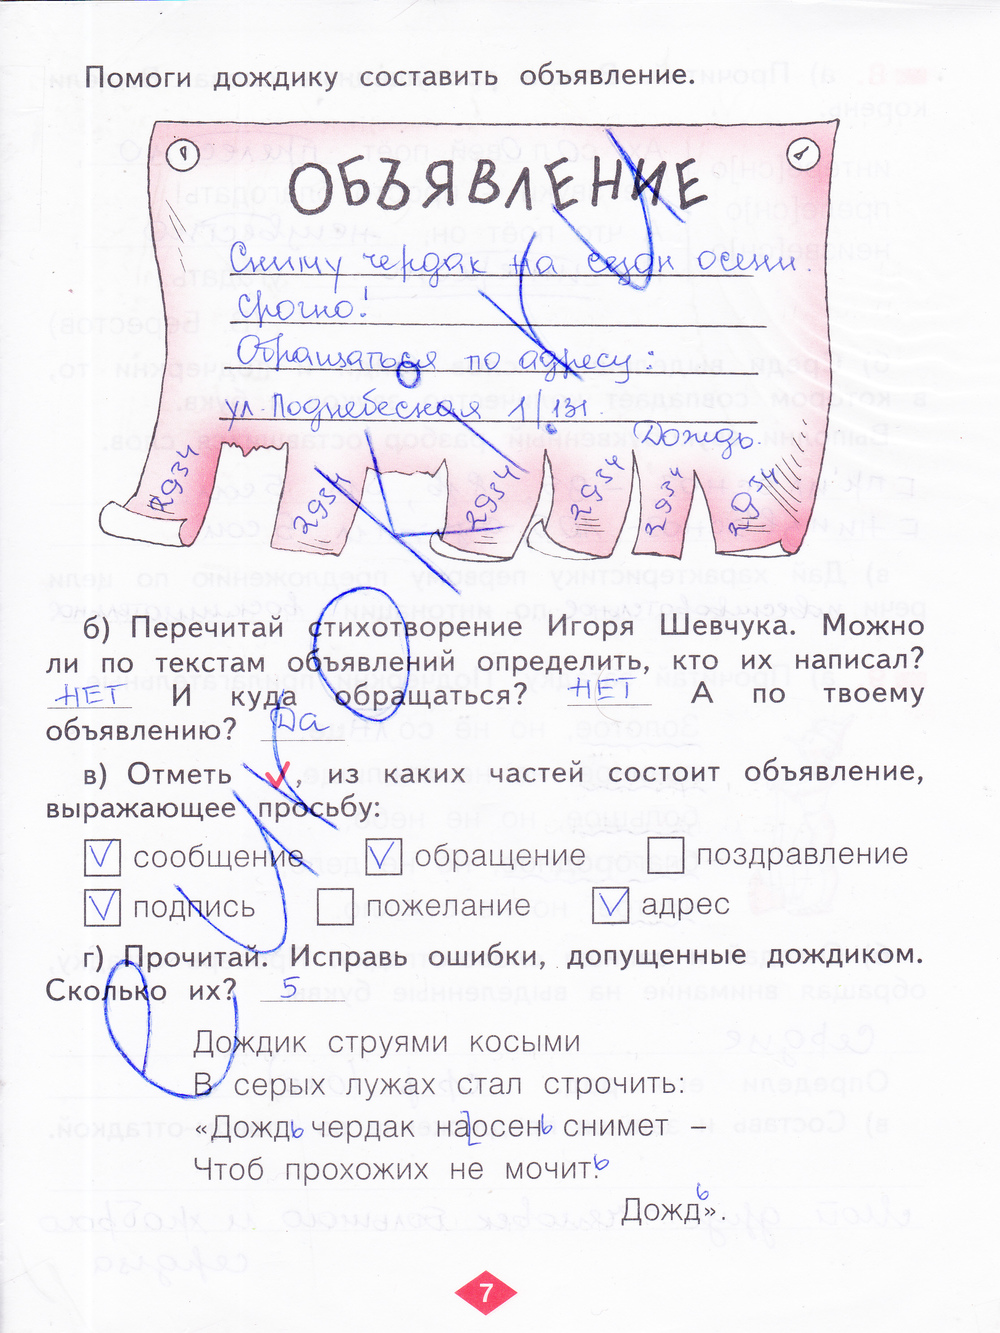 Помоги дождику составить объявление.
ОБЪЯВЛЕНИЕ
Сниму чердак на сезон осени.
Срочно!
Обращаться по адресу:
ул. Поднебесная 1/131.
Дождь.
2934 2934 2934 2934 2934 2934
б) Перечитай стихотворение Игоря Шевчука. Можно
ли по текстам объявлений определить, кто их написал?
НЕТ И куда обращаться? НЕТ А по твоему
объявлению? Да
в) Отметь ✓, из каких частей состоит объявление,
выражающее просьбу:
V сообщение V обращение поздравление
V подпись пожелание V адрес
г) Прочитай. Исправь ошибки, допущенные дождиком.
Сколько их? 5
Дождик струями косыми
В серых лужах стал строчить:
«Дождь чердак на осень снимет –
Чтоб прохожих не мочить.
Дождь».
7